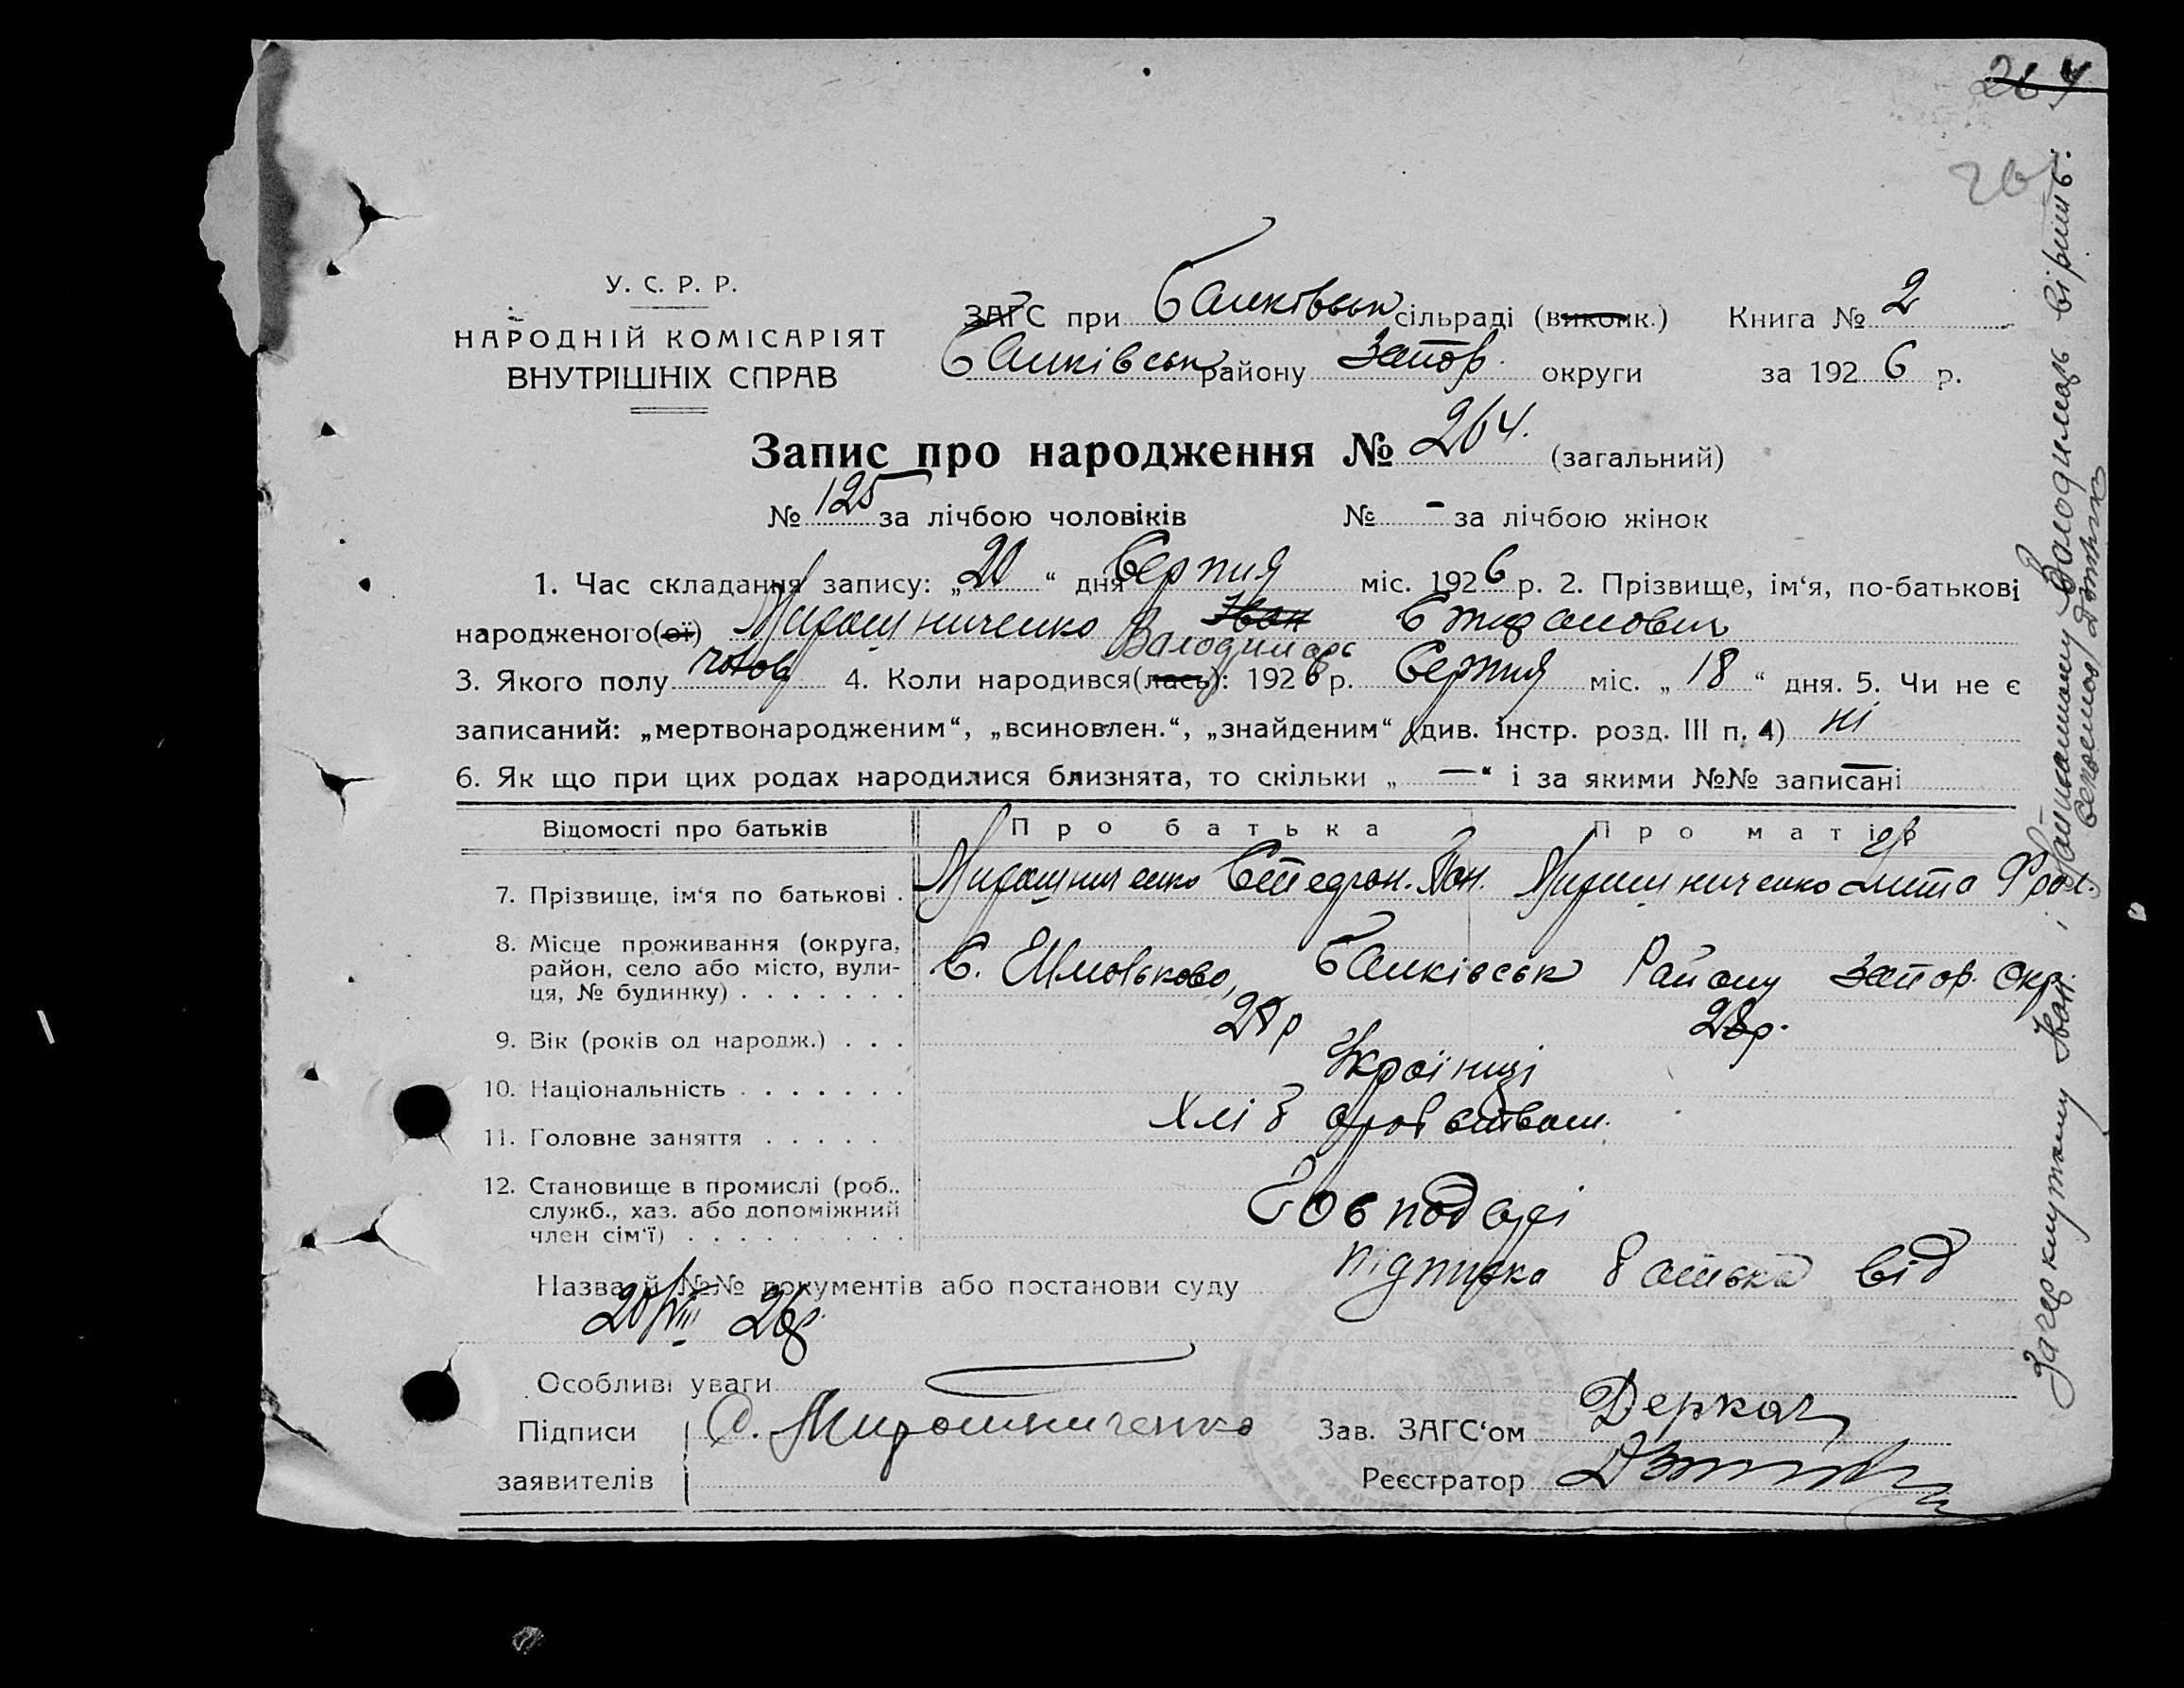 264
26
У. С. Р. Р.
НАРОДНІЙ КОМІСАРІЯТ
ВНУТРІШНІХ СПРАВ
ЗАГС при Балківськ сільраді (виконк.) Книга № 2
Балківськ району Запор. округи за 1926 р.
Запис про народження № 264. (загальний)
№ 125 за лічбою чоловіків № - за лічбою жінок
1. Час складання запису: „20“ дня Серпня міс. 1926 р. 2. Прізвище, ім‘я, по-батькові
народженого(ої) Мирошниченко Іван Стифанович
Валодимарь
3. Якого полу чолов 4. Коли народився(лась): 1926 р. Серпня міс. „18“ дня. 5. Чи не є
записаний: „мертвонародженим“, „всиновлен.“, „знайденим“ (див. інстр. розд. III п. 4) ні
6. Як що при цих родах народилися близнята, то скільки „—“ і за якими №№ записані —
Відомості про батьків Про батька Про матір
7. Прізвище, ім‘я по батькові . Мирошниченко Стефан. Мирошниченко
8. Місце проживання (округа, район, село або місто, вулиця, № будинку) . . . . . . . С. Балківськ Району Запор. Окр.
9. Вік (років од народж.) . . . 28р 28р.
10. Національність . . . . . . . Українці
11. Головне заняття . . . . . Хлібороб
12. Становище в промислі (роб., служб., хаз. або допоміжний член сім‘ї) . . . . . . . . . Господарі
Назва й №№ документів або постанови суду підписка батька від
20/VIII 26р.
Особливі уваги
Підписи С. Мирошниченко Зав. ЗАГС‘ом Деркач
заявителів Реєстратор
Зачеркнутому Іван. і Валодимарь вірить.